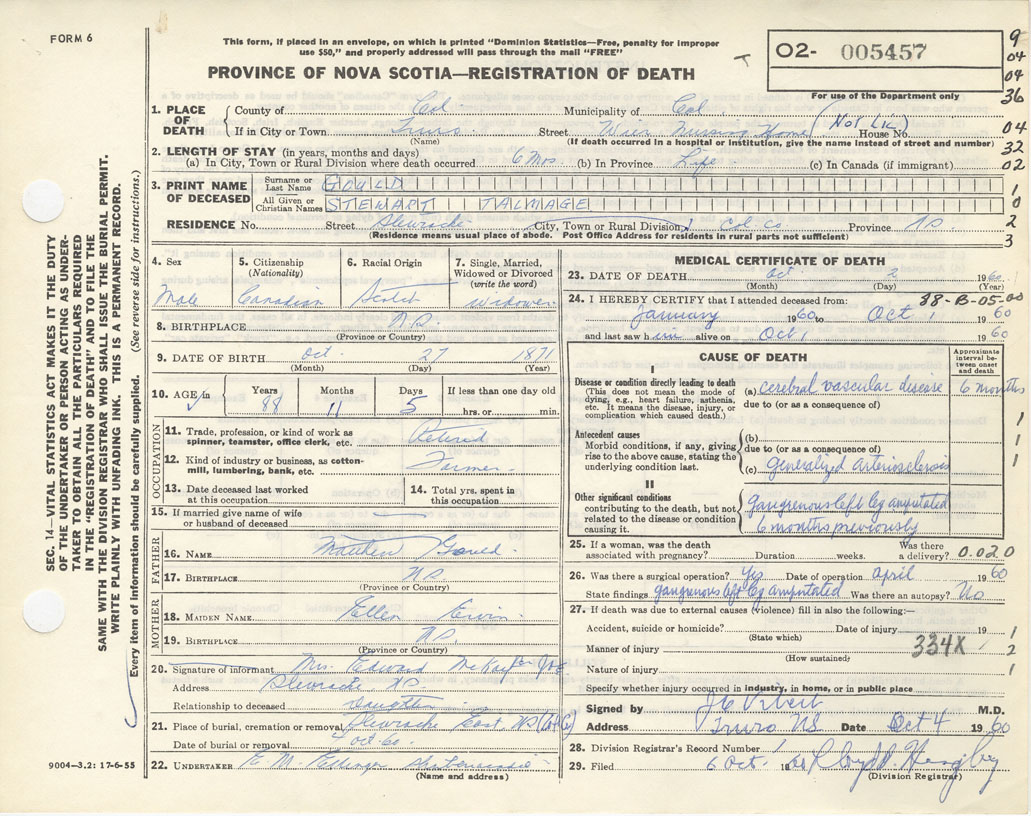 FORM 6
This form, if placed in an envelope, on which is printed "Dominion Statistics—Free, penalty for improper
use $50," and properly addressed will pass through the mail "FREE"
PROVINCE OF NOVA SCOTIA—REGISTRATION OF DEATH
O2- 005457
For use of the Department only
9
04
04
36
04
32
02
1
0
2
3
1. PLACE OF DEATH
County of Col Municipality of Col
If in City or Town Truro Street Wier Nursing Home (Not Lic) House No.
(Name) (If death occurred in a hospital or institution, give the name instead of street and number)
2. LENGTH OF STAY (in years, months and days)
(a) In City, Town or Rural Division where death occurred 6 Mos (b) In Province Life (c) In Canada (if immigrant)
3. PRINT NAME OF DECEASED
Surname or Last Name GOULD
All Given or Christian Names STEWART TALMAGE
RESIDENCE No. Street City, Town or Rural Division Col Co Province NS
(Residence means usual place of abode. Post Office Address for residents in rural parts not sufficient)
4. Sex
Male
5. Citizenship
(Nationality)
Canadian
6. Racial Origin
Scotch
7. Single, Married,
Widowed or Divorced
(write the word)
Widower
8. BIRTHPLACE N.S.
(Province or Country)
9. DATE OF BIRTH Oct. 27 1871
(Month) (Day) (Year)
10. AGE Years Months Days If less than one day old
88 11 5 hrs. or min.
OCCUPATION
11. Trade, profession, or kind of work as
spinner, teamster, office clerk, etc. Retired
12. Kind of industry or business, as cotton-
mill, lumbering, bank, etc. Farmer
13. Date deceased last worked
at this occupation
14. Total yrs. spent in
this occupation
15. If married give name of wife
or husband of deceased
FATHER
16. NAME Matthew Gould
17. BIRTHPLACE N.S.
(Province or Country)
MOTHER
18. MAIDEN NAME Ellen
19. BIRTHPLACE N.S.
(Province or Country)
20. Signature of informant Mrs. Edward McKay
Address NS
Relationship to deceased Daughter
21. Place of burial, cremation or removal East NS
Date of burial or removal 4 Oct. 60
22. UNDERTAKER E. M.
(Name and address)
MEDICAL CERTIFICATE OF DEATH
23. DATE OF DEATH Oct 2 1960
(Month) (Day)
24. I HEREBY CERTIFY that I attended deceased from: 38-B-05-00
January 1960 to Oct 1 1960
and last saw him alive on Oct 1 1960
CAUSE OF DEATH
Approximate
interval be-
tween onset
and death
I
Disease or condition directly leading to death
This does not mean the mode of
dying, e.g., heart failure, asthenia,
etc. It means the disease, injury, or
complication which caused death.)
(a) cerebral vascular disease 6 months
due to (or as a consequence of)
Antecedent causes
Morbid conditions, if any, giving
rise to the above cause, stating the
underlying condition last.
(b)
due to (or as a consequence of)
(c) generalized arteriosclerosis
II
Other significant conditions
contributing to the death, but not
related to the disease or condition
causing it.
gangrenous left leg amputated
6 months previously
1
1
1
25. If a woman, was the death
associated with pregnancy? Duration weeks. Was there
a delivery? 0.020
26. Was there a surgical operation? Yes Date of operation April 1960
State findings gangrenous left leg amputated Was there an autopsy? No
27. If death was due to external causes (violence) fill in also the following:—
Accident, suicide or homicide? Date of injury 19 1
(State which)
Manner of injury 334X 2
(How sustained)
Nature of injury 1
Specify whether injury occurred in industry, in home, or in public place
Signed by M.D.
Address Truro NS Date Oct 4 1960
28. Division Registrar's Record Number 1
29. Filed 6 Oct. 1960
(Division Registrar)
SEC. 14—VITAL STATISTICS ACT MAKES IT THE DUTY
OF THE UNDERTAKER OR PERSON ACTING AS UNDER-
TAKER TO OBTAIN ALL THE PARTICULARS REQUIRED
IN THE "REGISTRATION OF DEATH" AND TO FILE THE
SAME WITH THE DIVISION REGISTRAR WHO SHALL ISSUE THE BURIAL PERMIT.
WRITE PLAINLY WITH UNFADING INK. THIS IS A PERMANENT RECORD.
Every item of information should be carefully supplied. (See reverse side for instructions.)
9004—3.2: 17-6-55